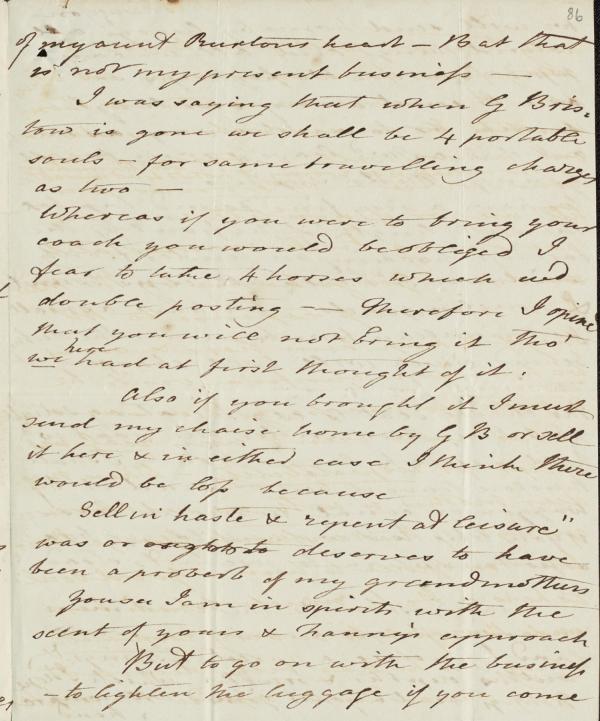 86
of my aunt Ruxtons heart – But that
is not my present business —
I was saying that when G Bris=
tow is gone we shall be 4 portable
souls – for same travelling charges
as two —
Whereas if you were to bring your
coach you would be obliged I
fear to take 4 horses which wd
double posting — therefore I opine
that you will not bring it tho'
we here had at first thought of it.
Also if you brought it I must
send my chaise home by G B or sell
it here & in either case I think there
would be loss because
Sell in haste & repent at leisure"
was or ought to deserves to have
been a proverb of my grandmothers
You see I am in spirits with the
scent of yours & Fanny's approach
But to go on with the business
– to lighten the luggage if you come